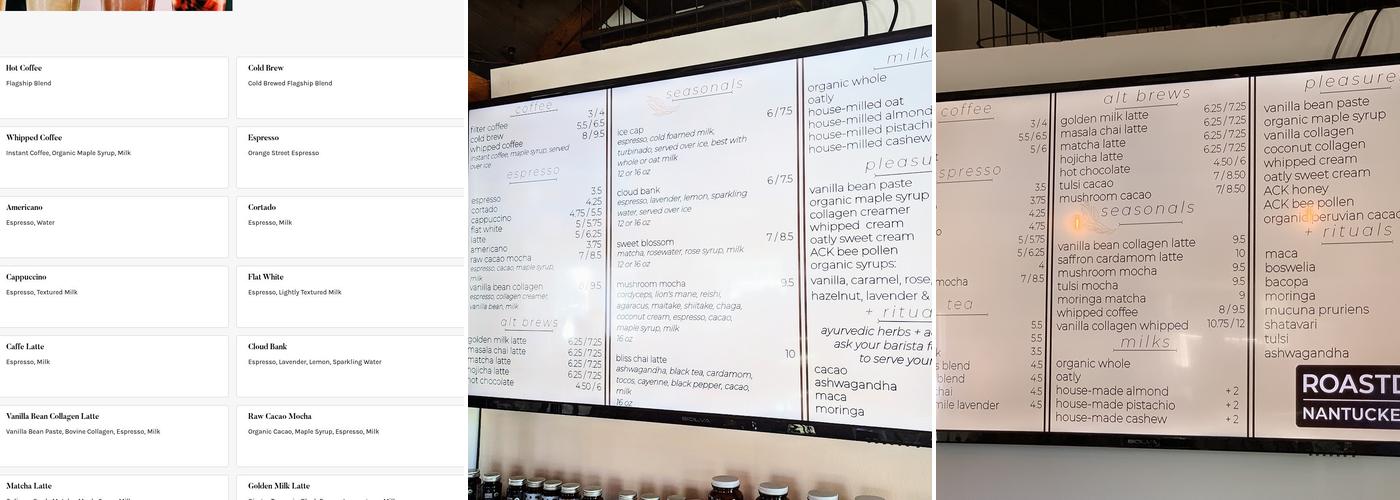 Hot Coffee
Flagship Blend
Cold Brew
Cold Brewed Flagship Blend
Whipped Coffee
Instant Coffee, Organic Maple Syrup, Milk
Espresso
Orange Street Espresso
Americano
Espresso, Water
Cortado
Espresso, Milk
Cappuccino
Espresso, Textured Milk
Flat White
Espresso, Lightly Textured Milk
Caffe Latte
Espresso, Milk
Cloud Bank
Espresso, Lavender, Lemon, Sparkling Water
Vanilla Bean Collagen Latte
Vanilla Bean Paste, Bovine Collagen, Espresso, Milk
Raw Cacao Mocha
Organic Cacao, Maple Syrup, Espresso, Milk
Matcha Latte
Golden Milk Latte
coffee
filter coffee 3/4
cold brew 5.5/6.5
whipped coffee 8/9.5
instant coffee, maple syrup, served
over ice
espresso
espresso 3.5
cortado 4.25
cappuccino 4.75/5.5
flat white 5/5.75
latte 5/6.25
americano 3.75
raw cacao mocha 7/8.5
espresso, cacao, maple syrup,
milk
vanilla bean collagen 8/9.5
espresso, collagen creamer,
vanilla bean, milk
alt brews
golden milk latte 6.25/7.25
masala chai latte 6.25/7.25
matcha latte 6.25/7.25
hojicha latte 6.25/7.25
hot chocolate 4.50/6
seasonals
ice cap 6/7.5
espresso, cold foamed milk,
turbinado, served over ice, best with
whole or oat milk
12 or 16 oz
cloud bank 6/7.5
espresso, lavender, lemon, sparkling
water, served over ice
12 or 16 oz
sweet blossom 7/8.5
matcha, rosewater, rose syrup, milk
12 or 16 oz
mushroom mocha 9.5
cordyceps, lion's mane, reishi,
agaricus, maitake, shiitake, chaga,
coconut cream, espresso, cacao,
maple syrup, milk
16 oz
bliss chai latte 10
ashwagandha, black tea, cardamom,
tocos, cayenne, black pepper, cacao,
milk
16 oz
milk
organic whole
oatly
house-milled oat
house-milled almond
house-milled pistachi
house-milled cashew
pleasu
vanilla bean paste
organic maple syrup
collagen creamer
whipped cream
oatly sweet cream
ACK bee pollen
organic syrups:
vanilla, caramel, rose,
hazelnut, lavender &
+ ritua
ayurvedic herbs + a
ask your barista f
to serve your
cacao
ashwagandha
maca
moringa
coffee
3/4
5.5/6.5
5/6
spresso
3.5
3.75
4.25
4.75
5/5.75
5/6.25
4
mocha 7/8.5
tea
5.5
5.5
3.5
s blend 4.5
blend 4.5
hai 4.5
mile lavender 4.5
alt brews
golden milk latte 6.25/7.25
masala chai latte 6.25/7.25
matcha latte 6.25/7.25
hojicha latte 6.25/7.25
hot chocolate 4.50/6
tulsi cacao 7/8.50
mushroom cacao 7/8.50
seasonals
vanilla bean collagen latte 9.5
saffron cardamom latte 10
mushroom mocha 9.5
tulsi mocha 9.5
moringa matcha 9
whipped coffee 8/9.5
vanilla collagen whipped 10.75/12
milks
organic whole
oatly
house-made almond +2
house-made pistachio +2
house-made cashew +2
pleasure
vanilla bean paste
organic maple syrup
vanilla collagen
coconut collagen
whipped cream
oatly sweet cream
ACK honey
ACK bee pollen
organic peruvian cacao
+ rituals
maca
boswelia
bacopa
moringa
mucuna pruriens
shatavari
tulsi
ashwagandha
ROASTD
NANTUCKE